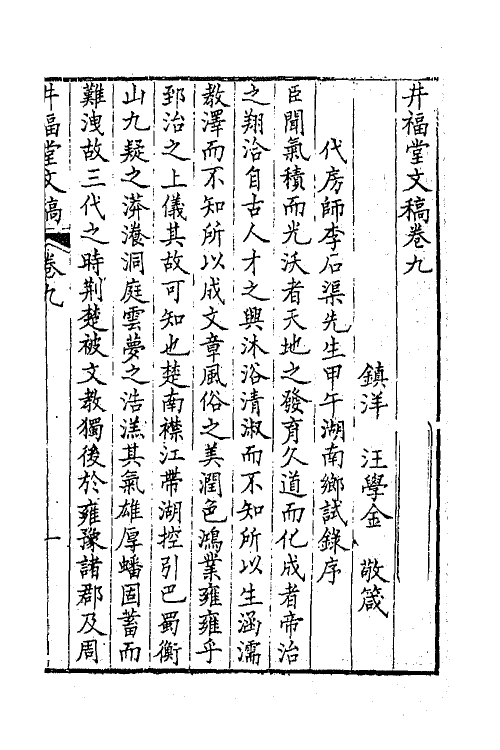 井福堂文稿卷九
鎮洋 汪學金 敬箴
代房師李石渠先生甲午湖南鄉試錄序
臣聞氣積而光沃者天地之發育久道而化成者帝治
之翔洽自古人才之興沐浴清淑而不知所以生涵濡
教澤而不知所以成文章風俗之美潤色鴻業雍雍乎
郅治之上儀其故可知也楚南襟江帶湖控引巴蜀衡
山九疑之漭瀁洞庭雲夢之浩溔其氣雄厚蟠固蓄而
難洩故三代之時荆楚被文教獨後於雍豫諸郡及周
井福堂文稿 卷九 一